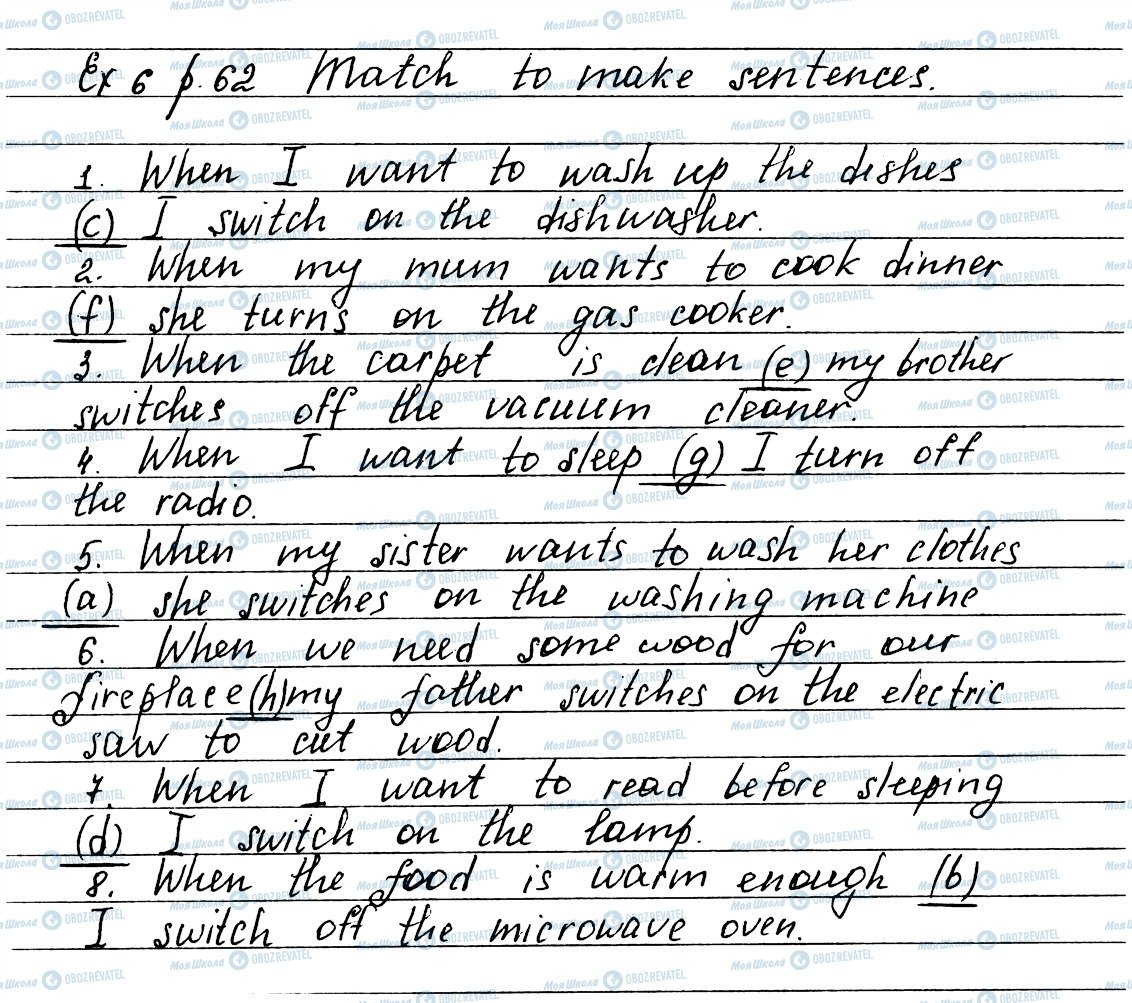 Ex 6 p. 62 Match to make sentences.
1. When I want to wash up the dishes
(c) I switch on the dishwasher.
2. When my mum wants to cook dinner
(f) she turns on the gas cooker.
3. When the carpet is clean (e) my brother
switches off the vacuum cleaner.
4. When I want to sleep (g) I turn off
the radio.
5. When my sister wants to wash her clothes
(a) she switches on the washing machine
6. When we need some wood for our
fireplace (h) my father switches on the electric
saw to cut wood.
7. When I want to read before sleeping
(d) I switch on the lamp.
8. When the food is warm enough (b)
I switch off the microwave oven.